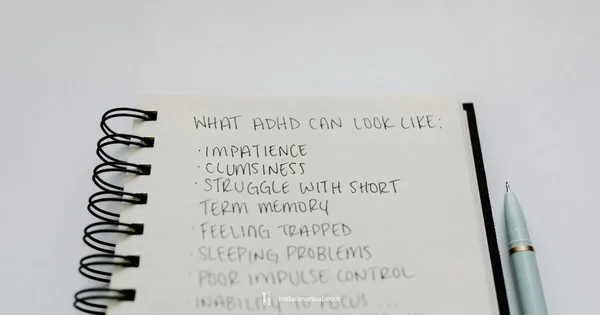 WHAT ADHD CAN LOOK LIKE:
·IMPATIENCE
·CLUMSINESS
·STRUGGLE WITH SHORT
TERM MEMORY
·FEELING TRAPPED
·SLEEPING PROBLEMS
·POOR IMPULSE CONTROL
·INABILITY TO FOCUS ...
installmanual.com